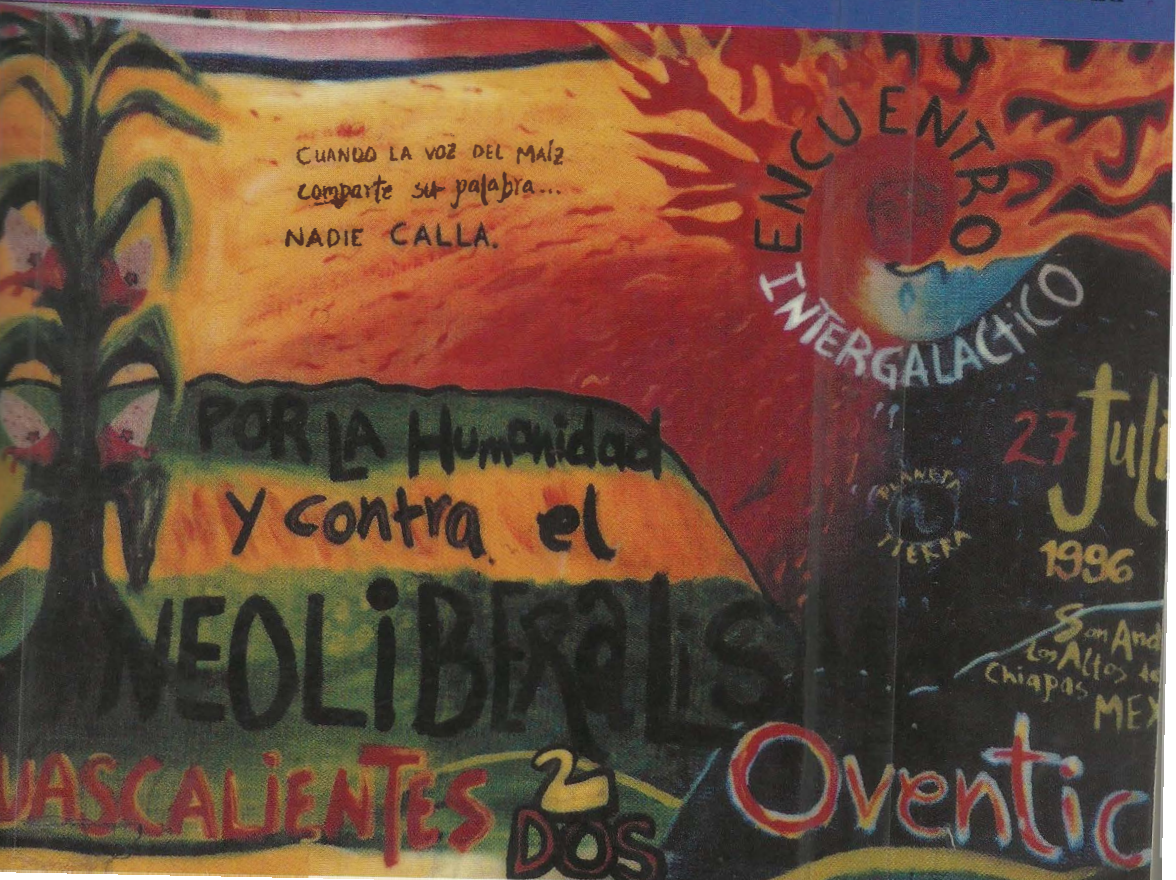 CUANDO LA VOZ DEL MAÍZ
comparte su palabra...
NADIE CALLA.
ENCUENTRO
INTERGALACtiCO
POR LA Humanidad
y contra el
NEOLiBERaLiS
PLANETA
TIERRA
27 Juli
1996
San And
Los Altos de
Chiapas
MEX
UASCALiENTES
2
DOS
Oventic